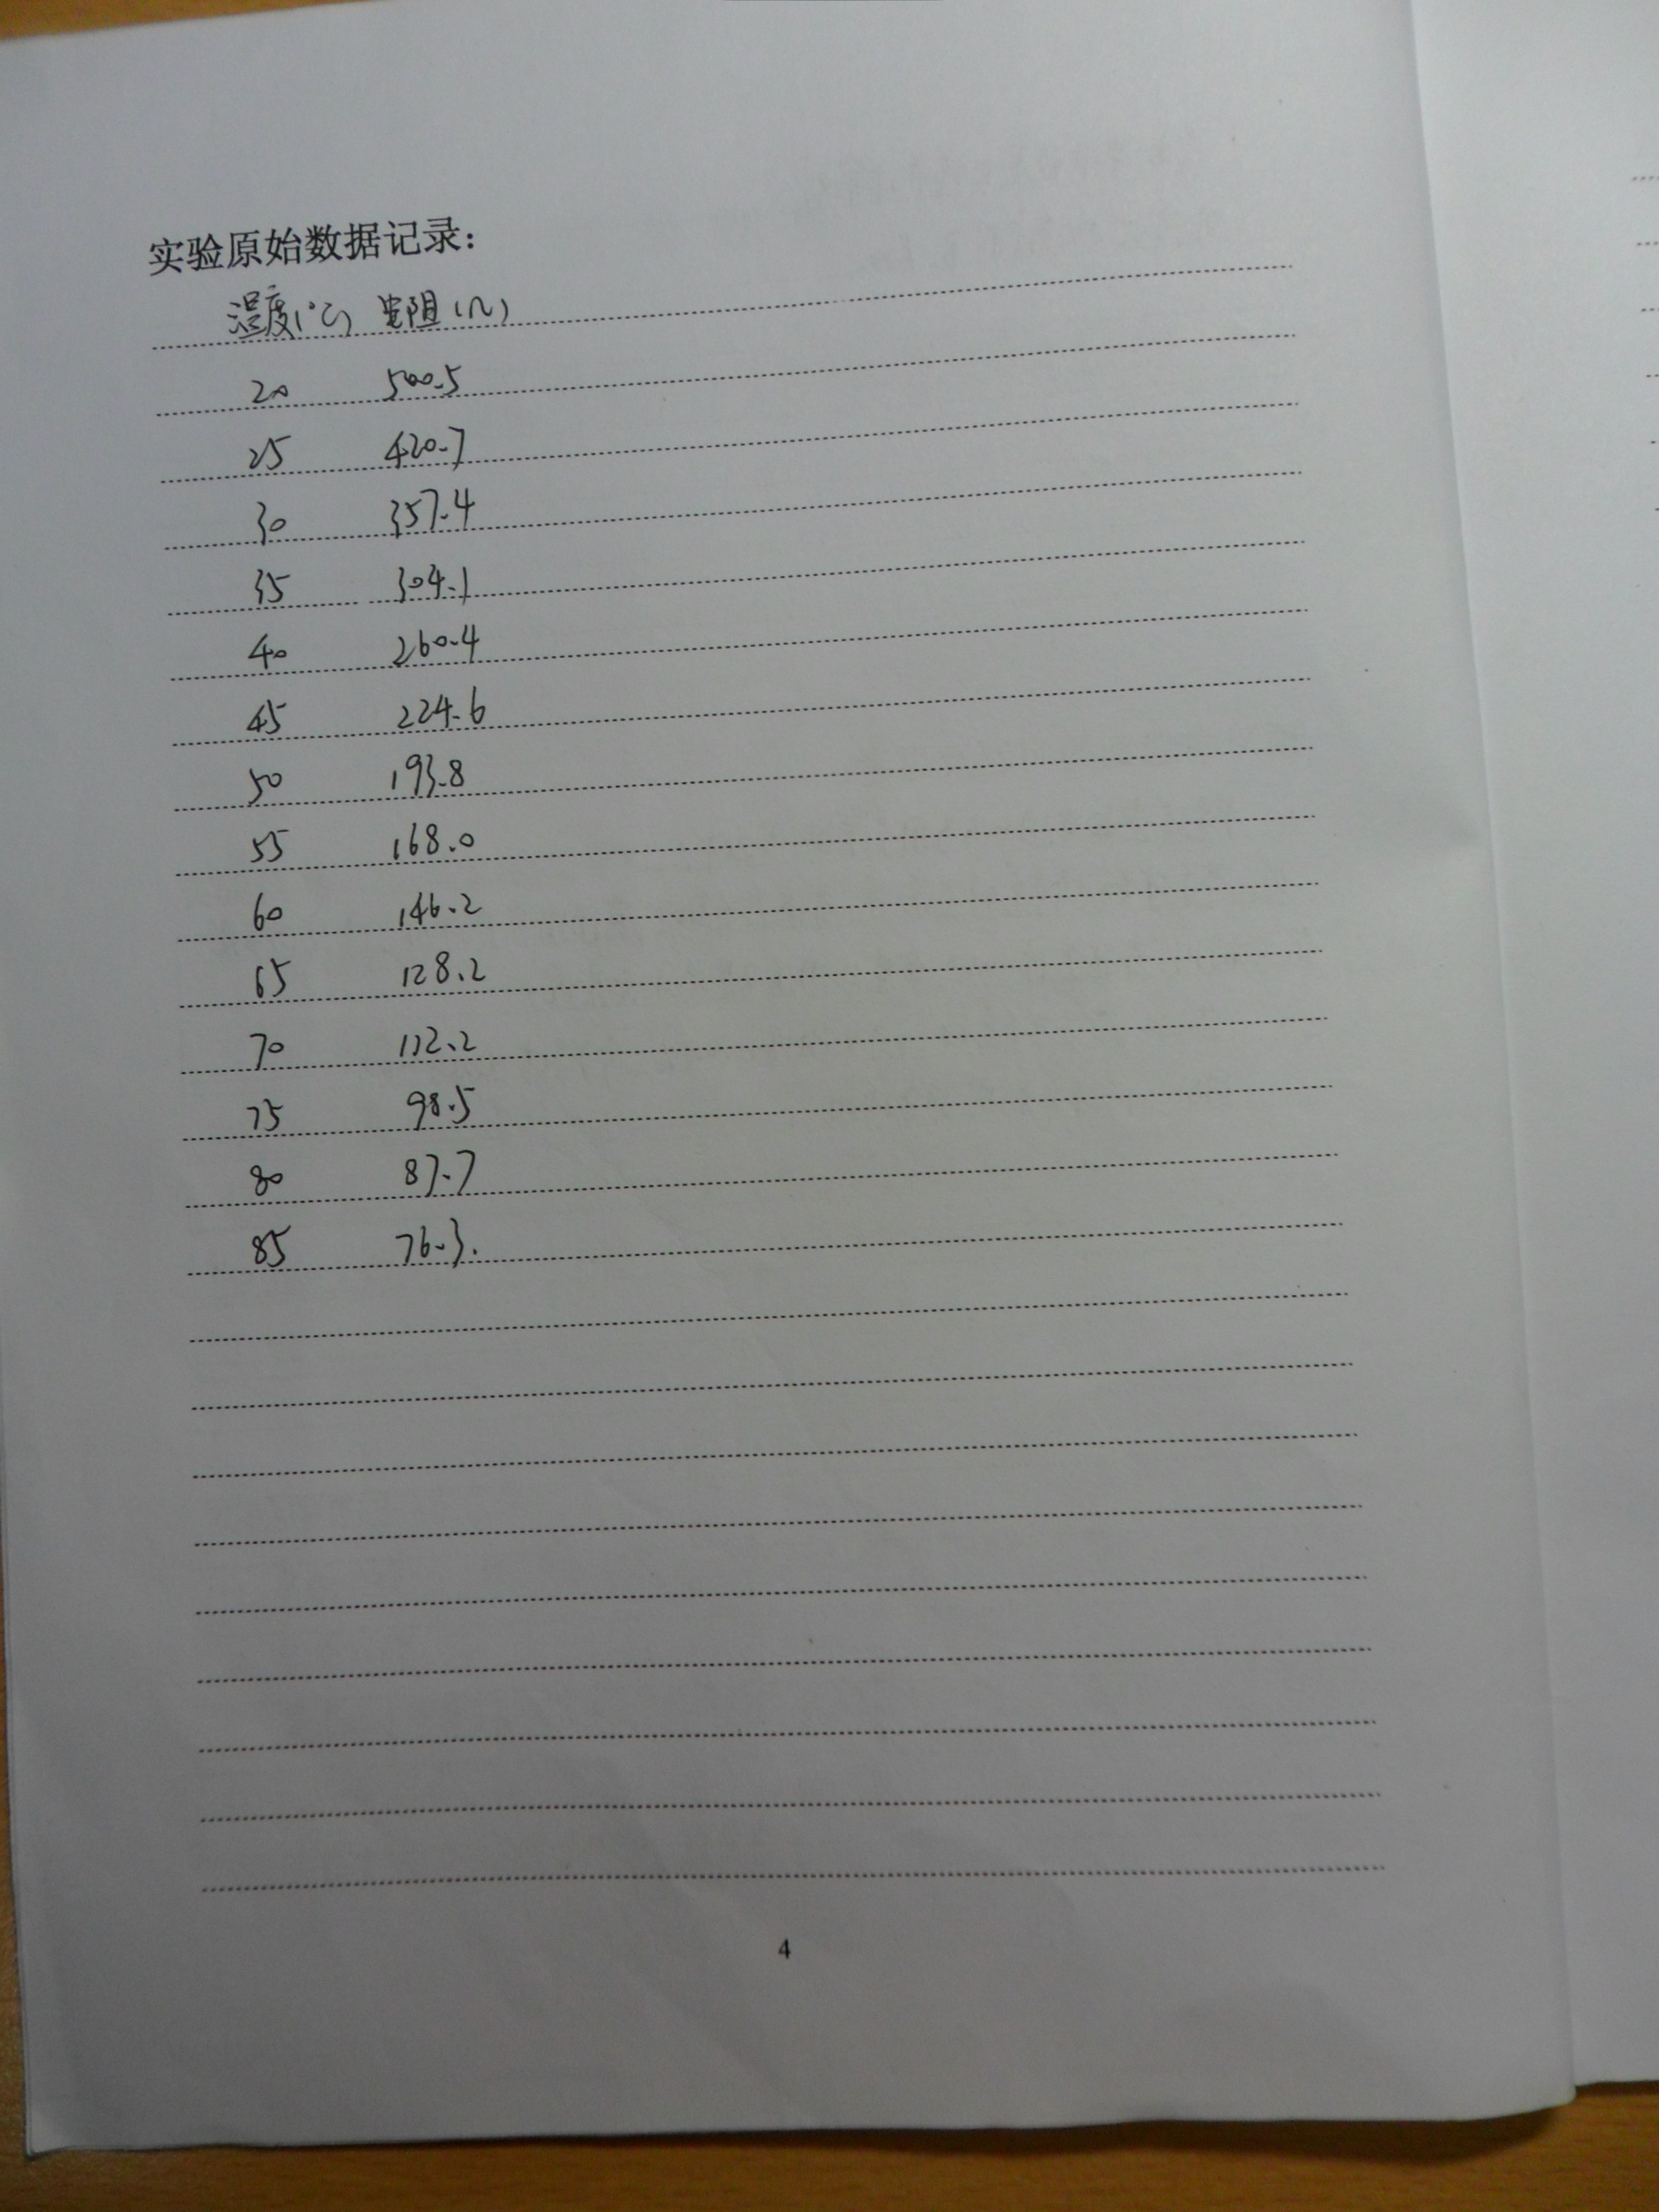 实验原始数据记录:
温度(℃) 电阻(Ω)
20 500.5
25 420.7
30 357.4
35 304.1
40 260.4
45 224.6
50 193.8
55 168.0
60 146.2
65 128.2
70 112.2
75 98.5
80 87.7
85 76.3.
4